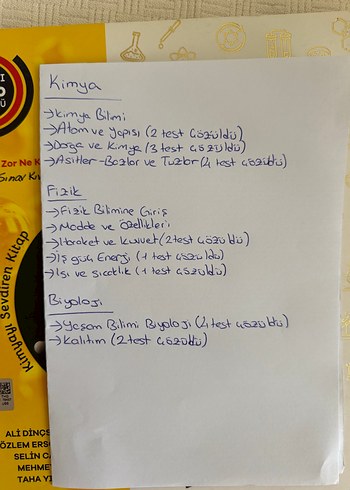 Kimya
→Kimya Bilimi
→Atom ve Yapısı (2 test çözüldü)
→Doğa ve Kimya (3 test çözüldü)
→Asitler-Bazlar ve Tuzlar (4 test çözüldü)
Fizik
→Fizik Bilimine Giriş
→Madde ve Özellikleri
→Hareket ve kuvvet (2 test çözüldü)
→İş güç Enerji (1 test çözüldü)
→Isı ve sıcaklık (1 test çözüldü)
Biyoloji
→Yaşam Bilimi Biyoloji (4 test çözüldü)
→Kalıtım (2 test çözüldü)
Zor Ne K
Sınav Kı
Kimyayı Sevdiren Kitap
ALİ DİNÇS
ÖZLEM ERS
SELİN C
MEHMET
TAHA YI